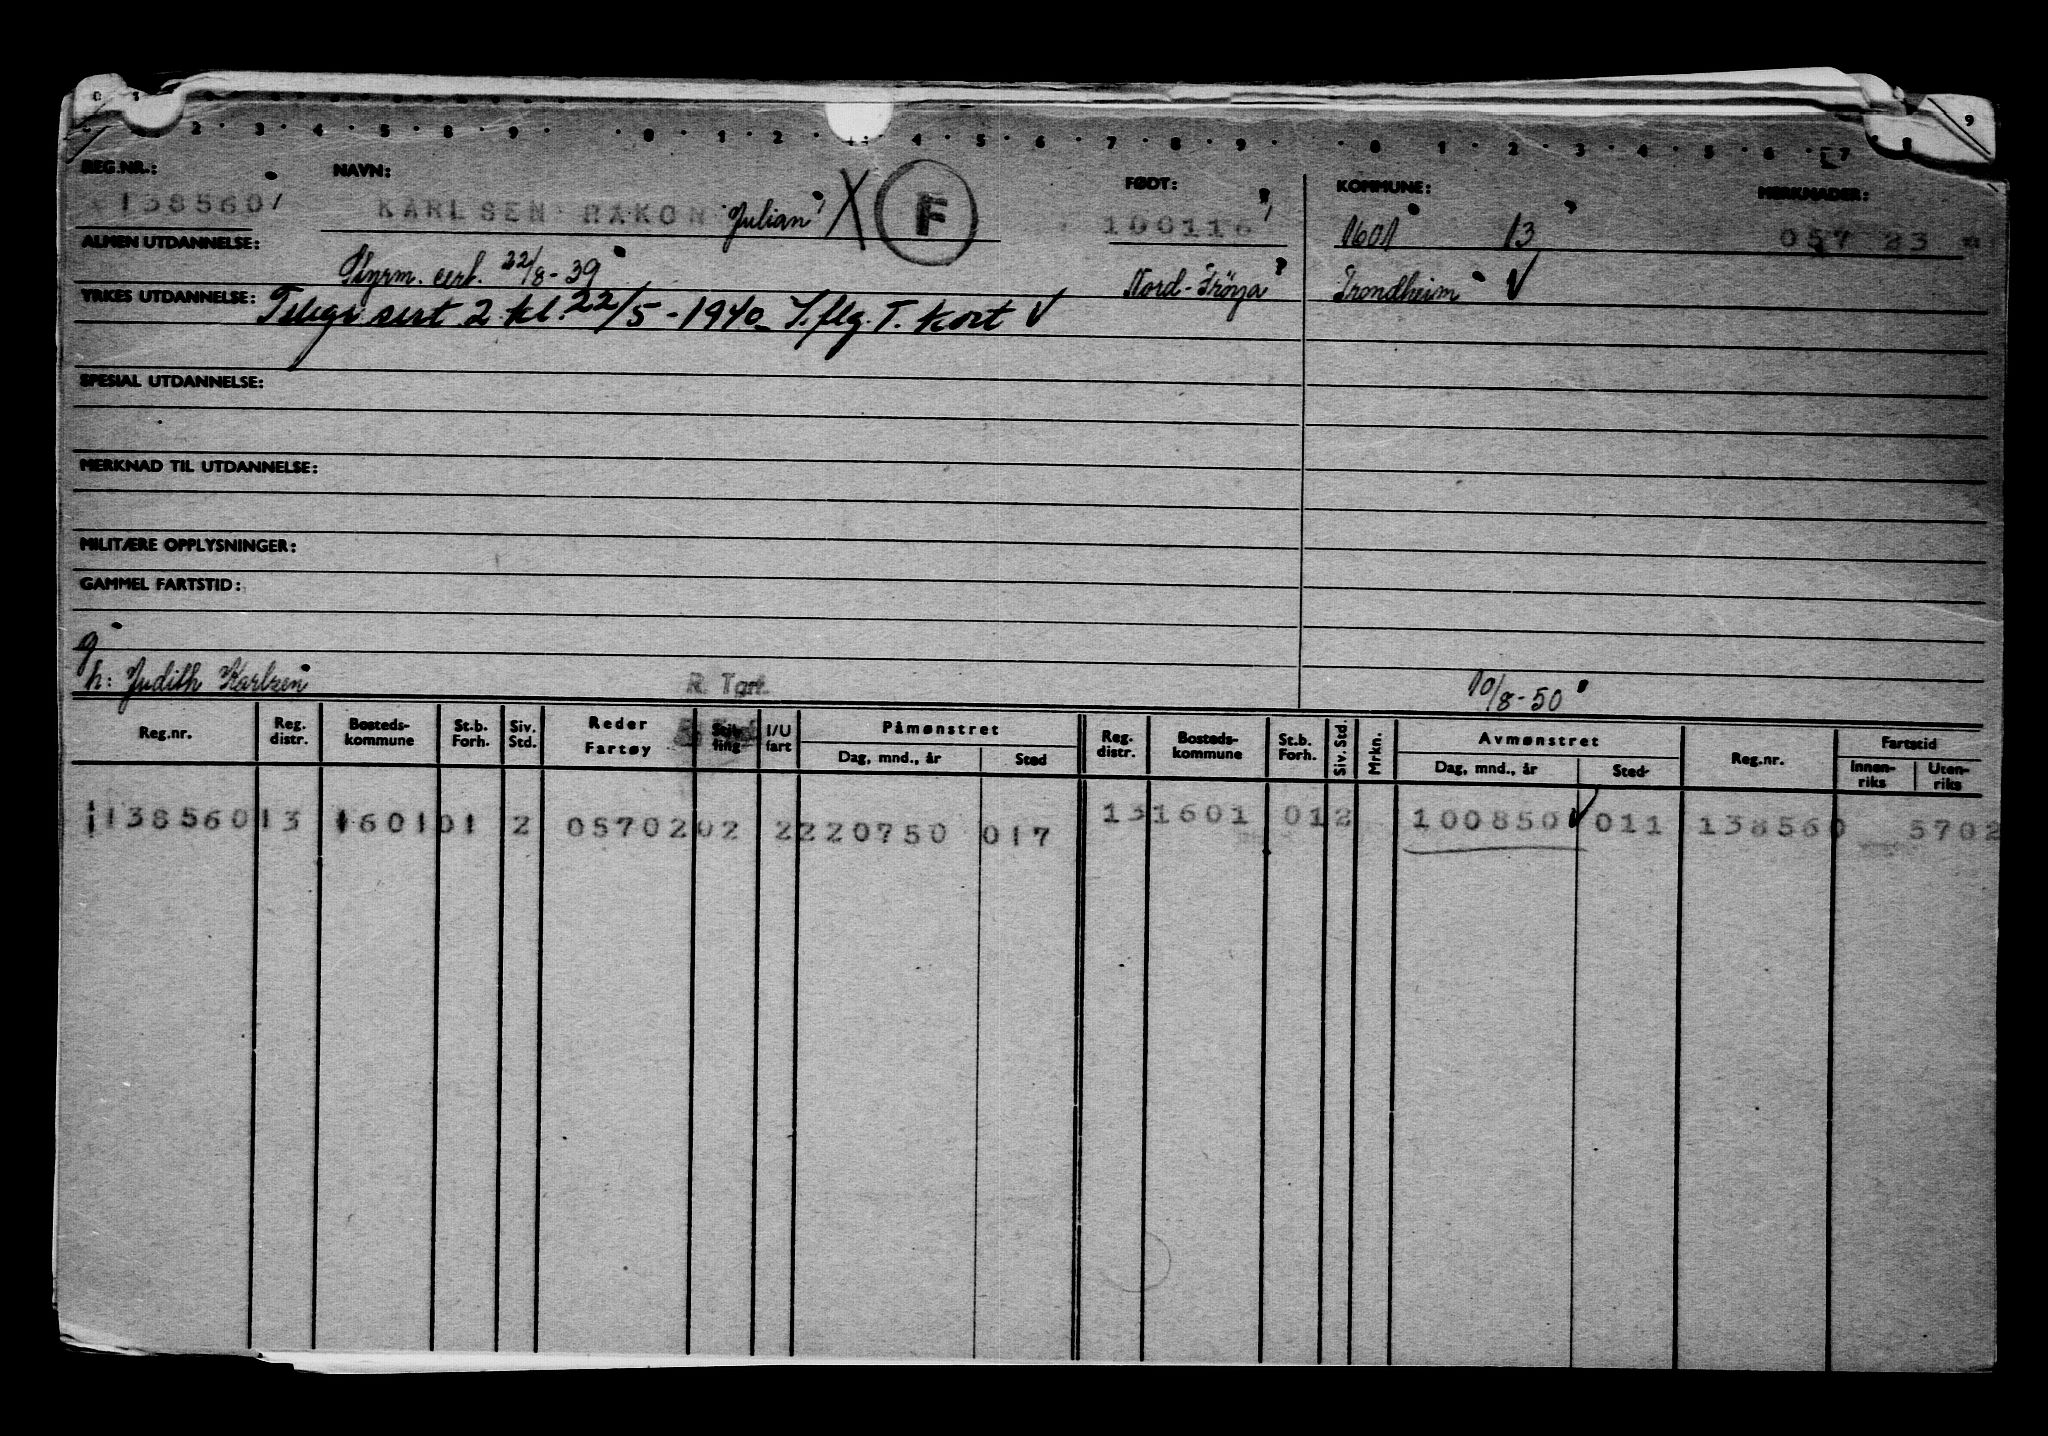 0 1 2 3 4 5 8 9 0 1 2 4 5 6 7 8 9 0 1 2 3 4 5 6 7 8 9
REG.NR.: NAVN: FØDT: KOMMUNE: MERKNADER:
138560 KARLSEN HAKON Julian X F 100116 1601 13 057 23
ALMEN UTDANNELSE:
Styrm. cert. 22/8-39 Nord-Fröya Trondheim V
YRKES UTDANNELSE: sert 2 kl. 22/5-1940 T. kort V
SPESIAL UTDANNELSE:
MERKNAD TIL UTDANNELSE:
MILITÆRE OPPLYSNINGER:
GAMMEL FARTSTID:
g
h: Judith Karlsen R. Tgrt. 10/8-50
Reg.nr. Reg. distr. Bosteds- kommune St.b. Forh. Siv. Std. Reder Fartøy Stil- ling I/U fart Påmønstret Dag, mnd., år Sted Reg. distr. Bosteds- kommune St.b. Forh. Siv. Std. Mrkn. Avmønstret Dag, mnd., år Sted Reg.nr. Fartstid Innen- riks Uten- riks
138560 13 1601 01 2 05702 02 2 220750 017 13 1601 01 2 100850 011 138560 5702